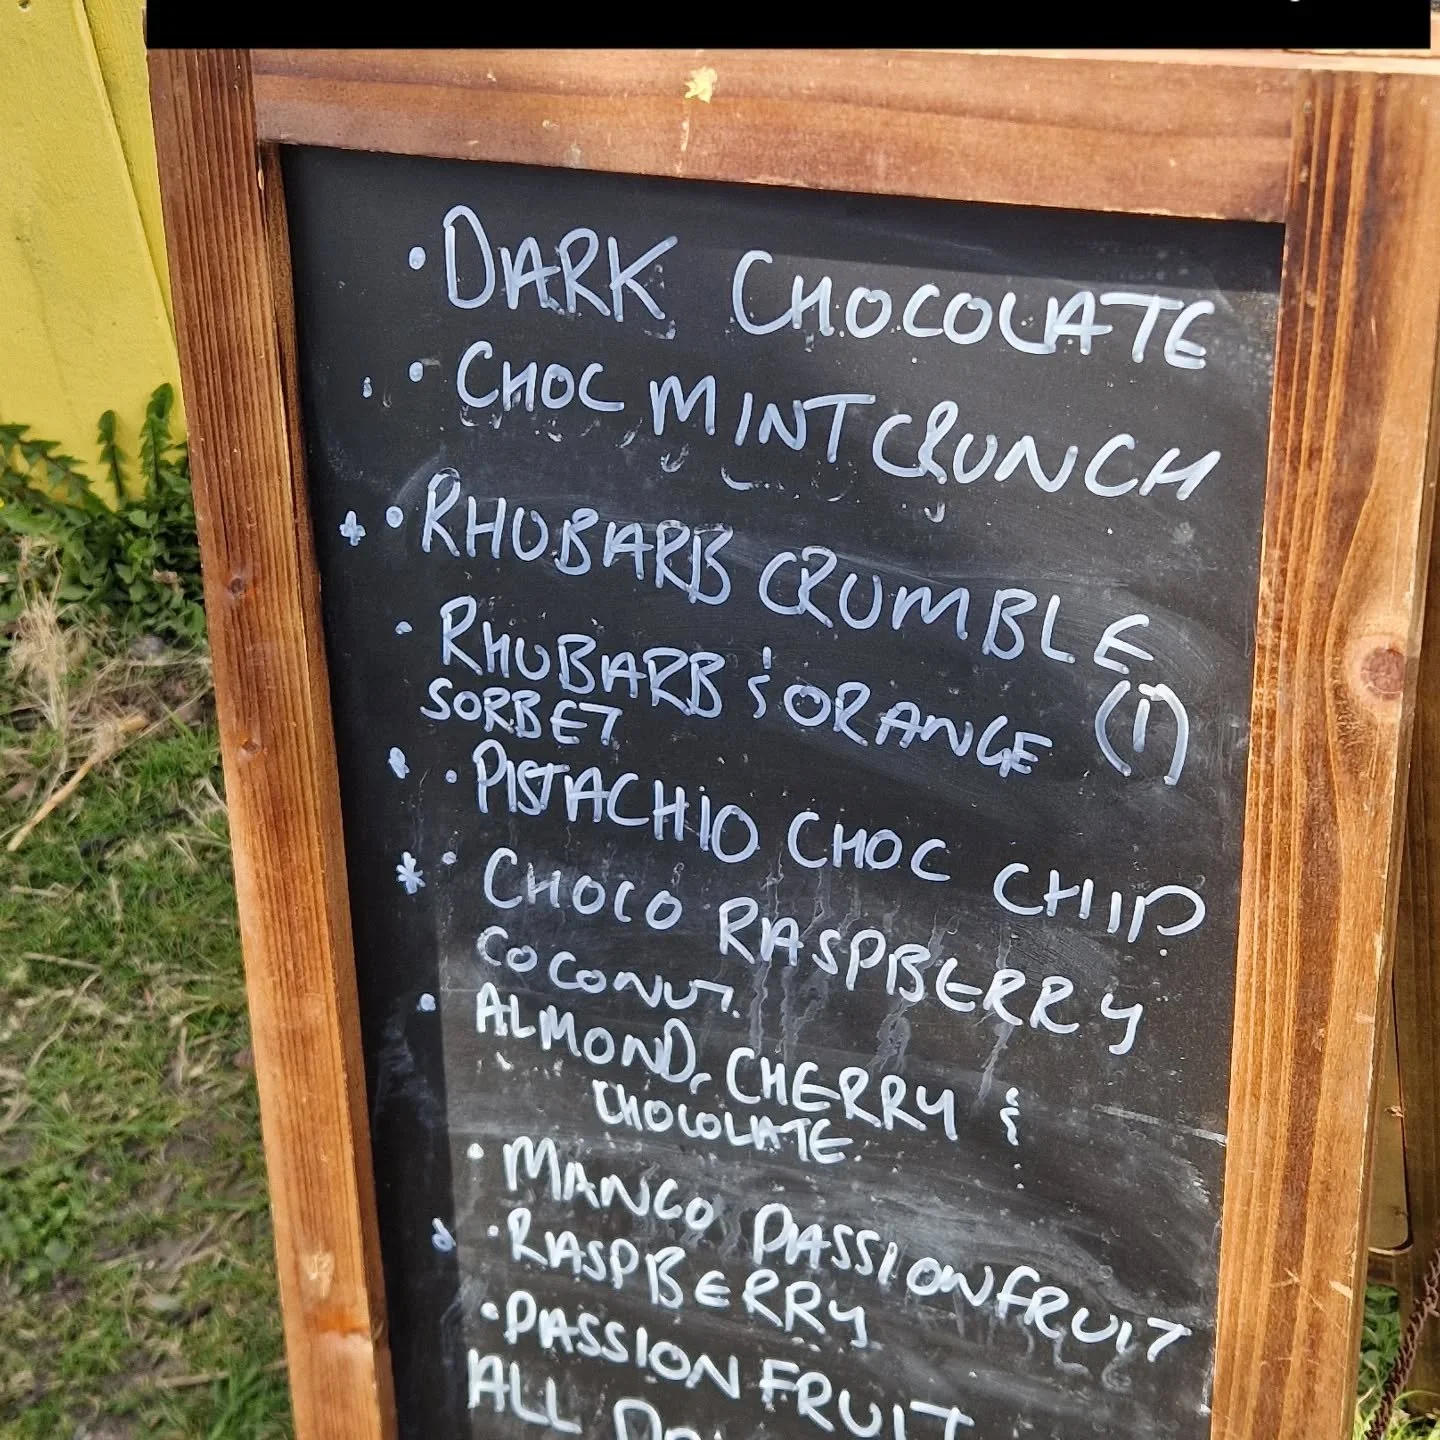 • DARK CHOCOLATE
• CHOC MINT CRUNCH
* • RHUBARB CRUMBLE
• RHUBARB & ORANGE (1)
SORBET
• PISTACHIO CHOC CHIP
* • CHOCO RASPBERRY
COCONUT.
• ALMOND, CHERRY &
CHOCOLATE.
• MANGO PASSIONFRUIT
• RASPBERRY
• PASSIONFRUIT
ALL